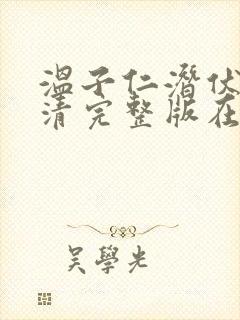 温子仁潛伏
清完整版在
吴學光